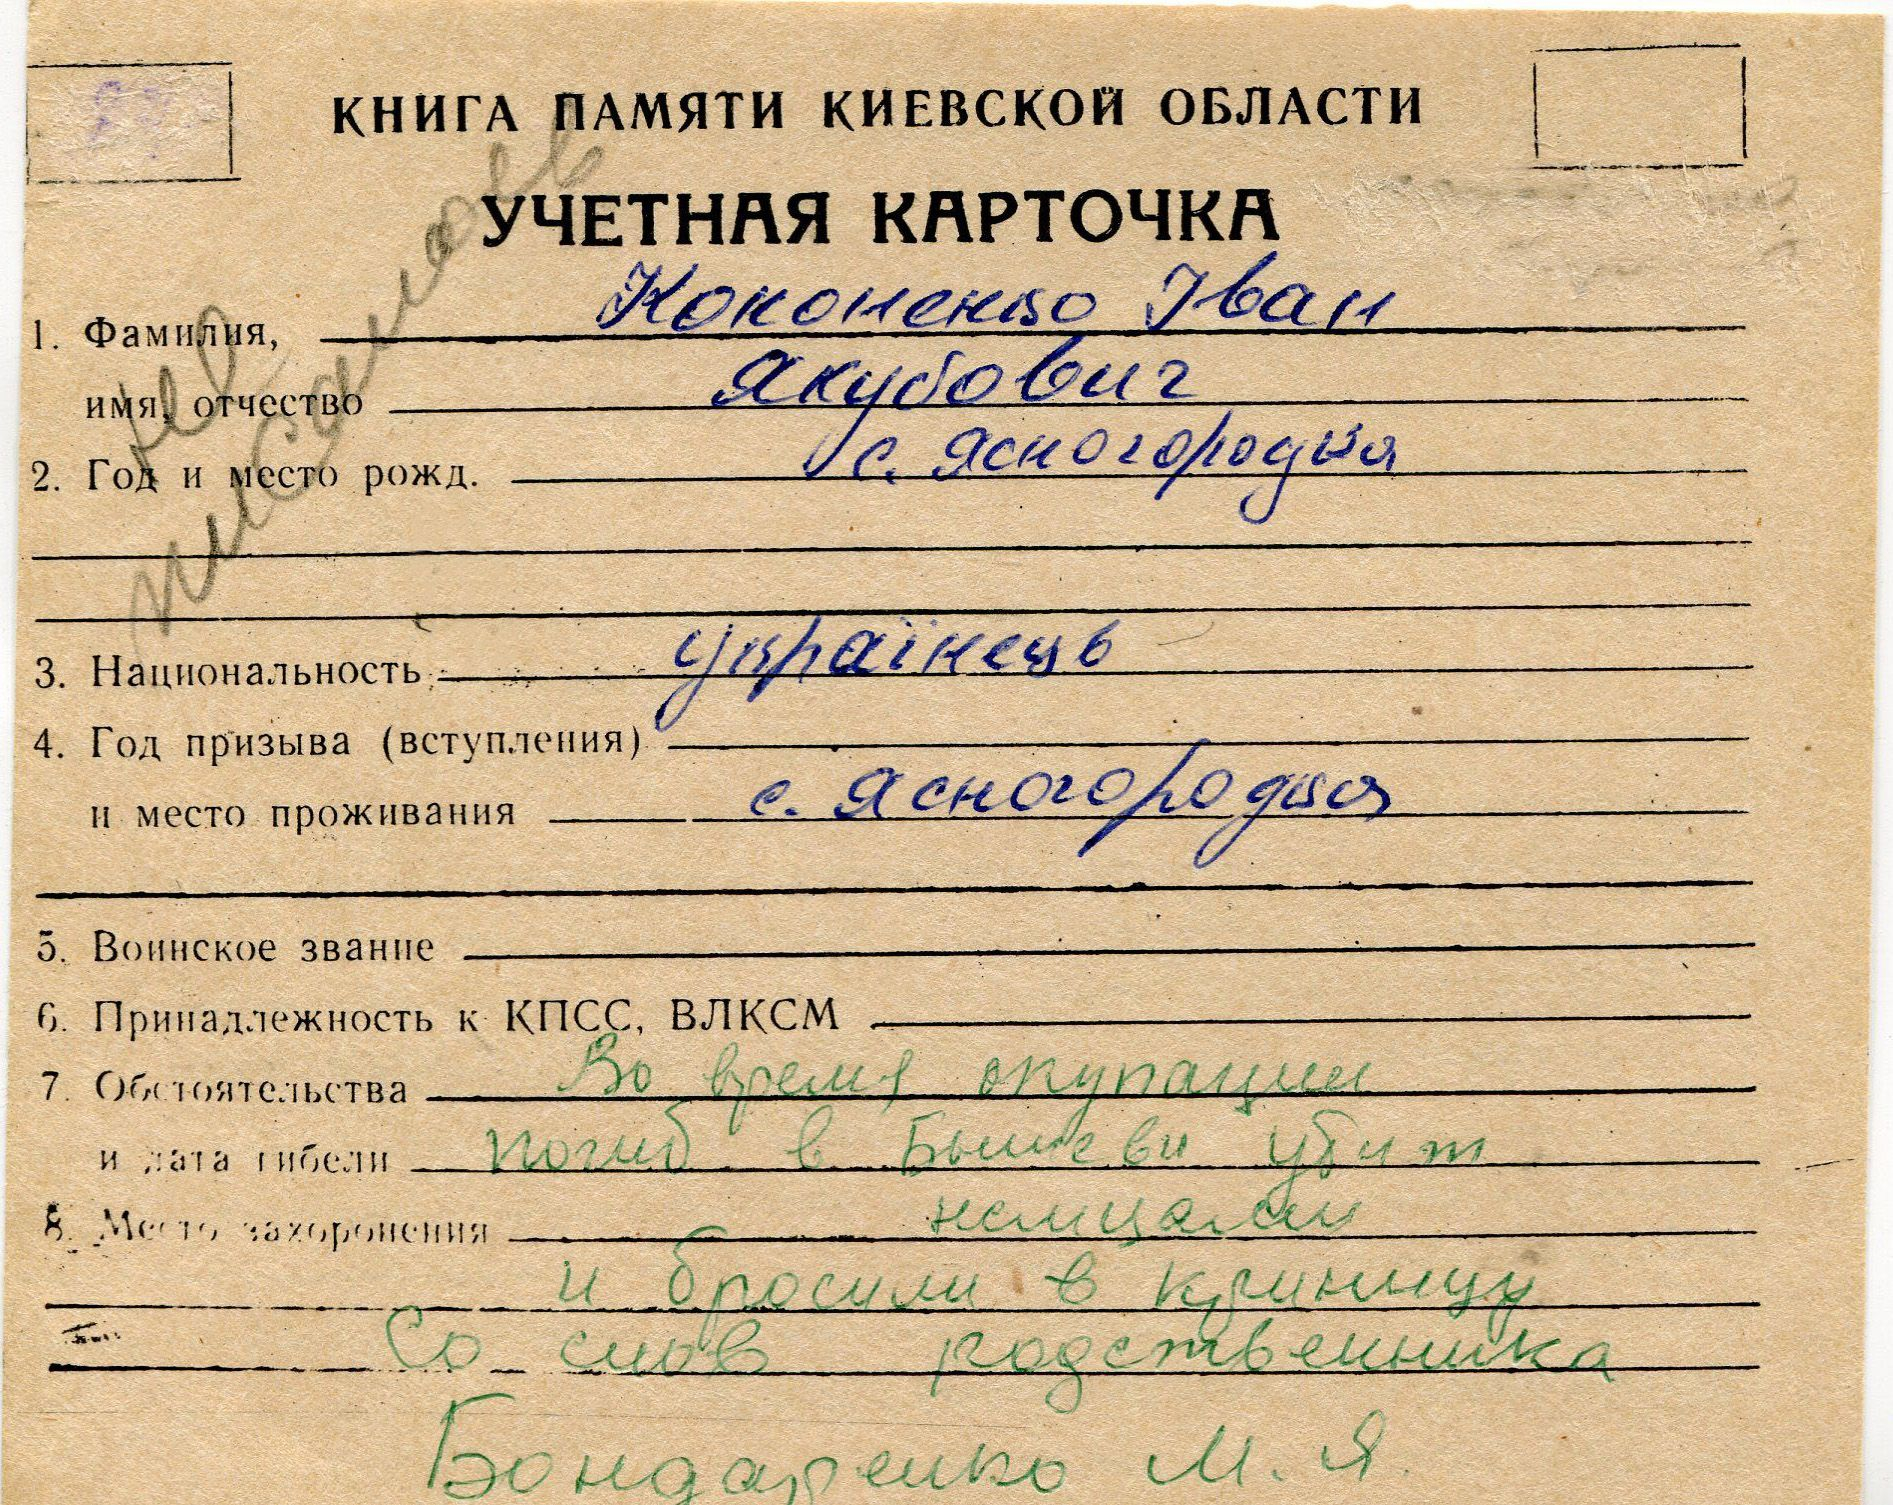 КНИГА ПАМЯТИ КИЕВСКОЙ ОБЛАСТИ
УЧЕТНАЯ КАРТОЧКА
1. Фамилия, Кононенко Іван
имя, отчество Якубович
2. Год и место рожд. с. Ясногородка
3. Национальность українець
4. Год призыва (вступления)
и место проживания с. Ясногородка
5. Воинское звание
6. Принадлежность к КПСС, ВЛКСМ
7. Обстоятельства Во время окупации
и дата гибели погиб в Бышеви убит
8. Место захоронения немцами
и бросили в криницу
Со слов родственника
Бондаренко М. Я.
не